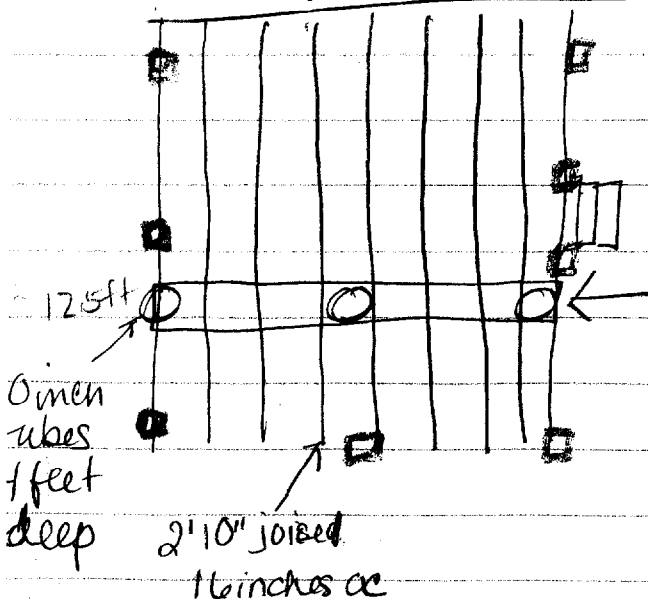 12.5ft
0 inch
tubes
feet
deep
2'10" joised
16 inches oc